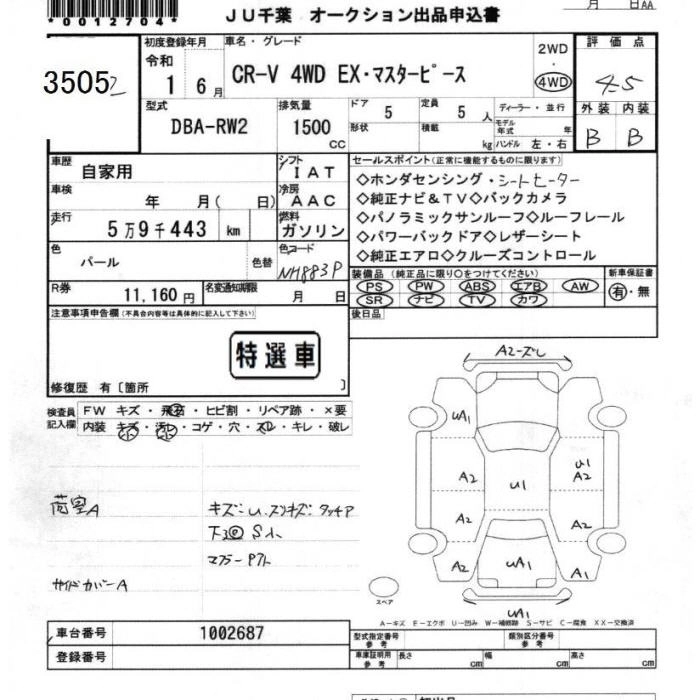 *0012704*
月 日 AA
JU千葉 オークション出品申込書
35052
初度登録年月
令和
1 6 月
車名・グレード
CR-V 4WD EX・マスターピース
2WD
・
4WD
評価点
4.5
外装 内装
B B
型式
DBA-RW2
排気量
1500
CC
ドア 5
形状
定員 5 人
積載 kg
ディーラー・並行
モデル年式 年
ハンドル 左・右
車歴
自家用
シフト
IAT
車検
年 月( 日)
冷房
AAC
走行
5万9千443 km
燃料
ガソリン
色
パール
色替
色コード
NH883P
R券
11,160円
名変通知期限
月 日
セールスポイント(正常に機能するものに限ります)
◇ホンダセンシング・シートヒーター
◇純正ナビ&TV◇バックカメラ
◇パノラミックサンルーフ◇ルーフレール
◇パワーバックドア◇レザーシート
◇純正エアロ◇クルーズコントロール
装備品(純正品に限り○をつけてください)
PS PW ABS エアB AW
SR ナビ TV カワ
新車保証書
有・無
後日品
注意事項申告欄(不具合内容等は具体的に記入して下さい)
特選車
修復歴 有〔箇所 〕
検査員
記入欄
FW キズ・飛石・ヒビ割・リペア跡・×要
内装 キズ・汚レ・コゲ・穴・スレ・キレ・破レ
荷室A
キズ:U.スリキズ タッチア
下回 S小
マフラー
サイドカバーA
A2-ズレ
UA1
A2
U1
A2
U1
A2
A2
A2
UA1
A1
UA1
スペア
A-キズ E-エクボ U-凹み W-補修跡 S-サビ C-腐食 XX-交換済
車台番号
1002687
登録番号
型式指定番号
参考
類別区分番号
参考
車庫証明用
参考
長さ cm
幅 cm
高さ cm